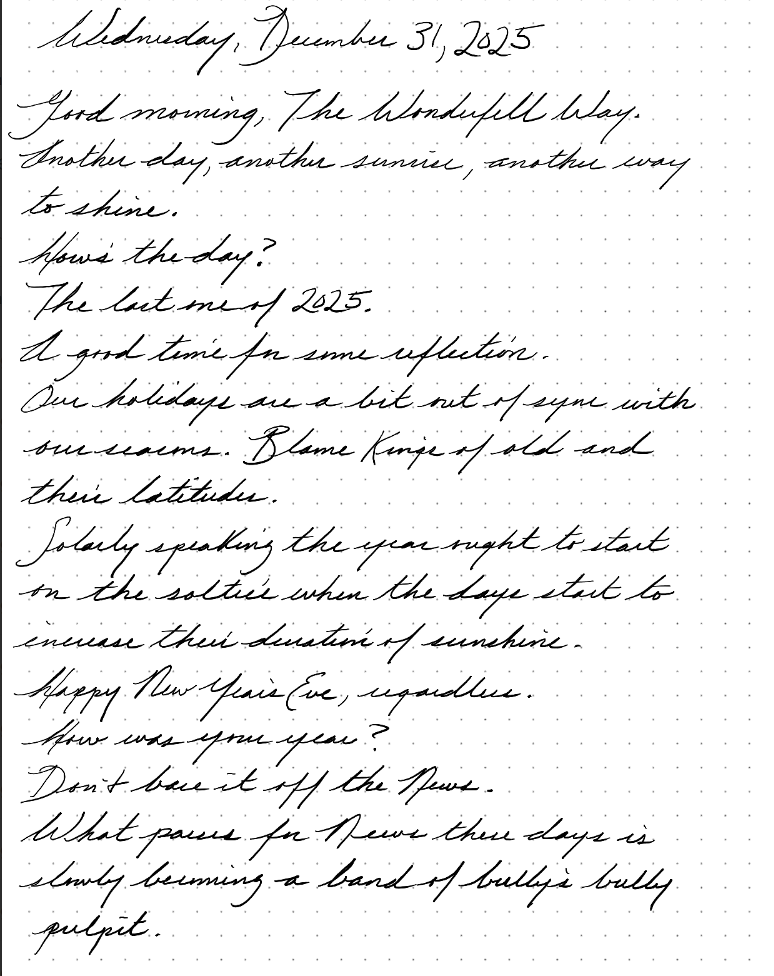 Wednesday, December 31, 2025
Good morning, The Wonderfell Way.
Another day, another sunrise, another way
to shine.
How's the day?
The last one of 2025.
A good time for some reflection.
Our holidays are a bit out of sync with
our seasons. Blame Kings of old and
their latitudes.
Solarly speaking the year ought to start
on the soltice when the days start to
increase their duration of sunshine.
Happy New Year's Eve, regardless.
How was your year?
Don't base it off the News.
What passes for News these days is
slowly becoming a band of bully's bully
pulpit.